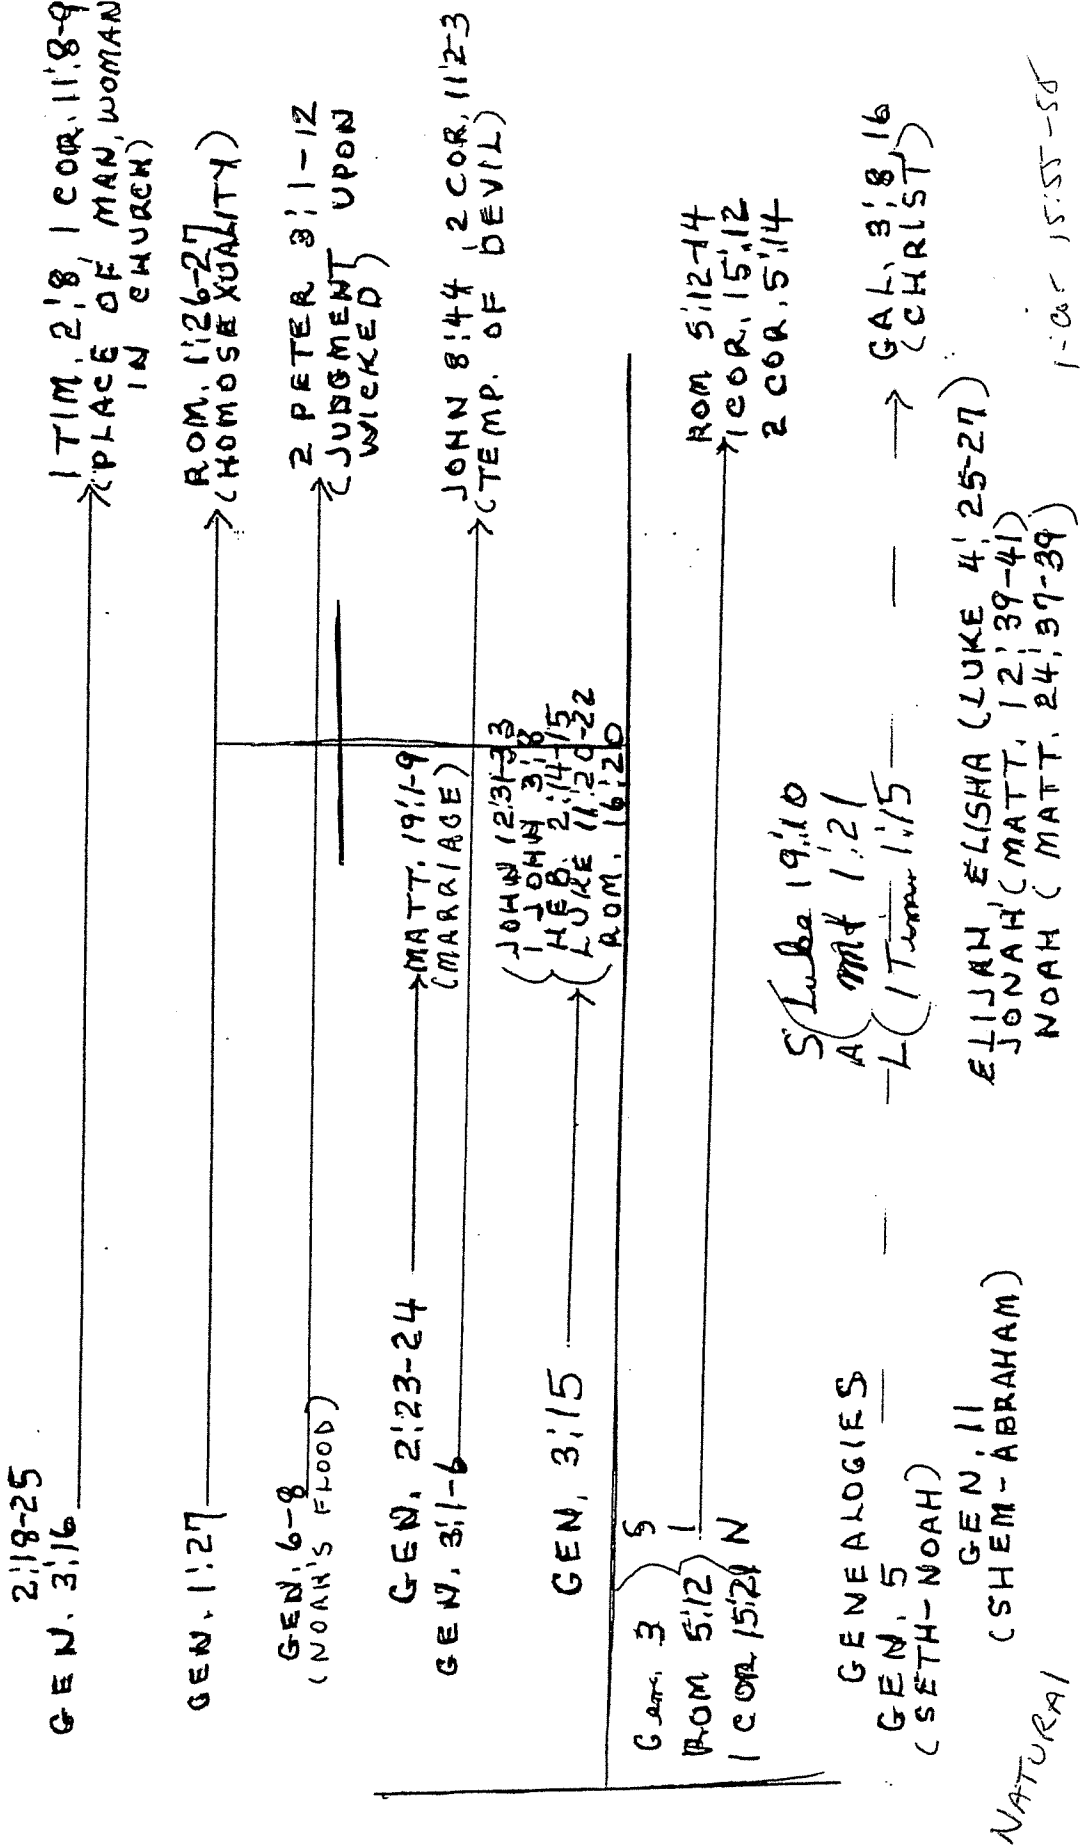 2:18-25
GEN. 3:16
1 TIM. 2:8, 1 COR. 11:8-9
(PLACE OF MAN, WOMAN
IN CHURCH)
GEN. 1:27
ROM. 1:26-27
(HOMOSEXUALITY)
GEN. 6-8
(NOAH'S FLOOD)
2 PETER 3:1-12
(JUDGMENT UPON
WICKED)
GEN. 2:23-24
MATT. 19:1-9
(MARRIAGE)
GEN. 3:1-6
JOHN 8:44, 2 COR. 11:2-3
(TEMP. OF DEVIL)
GEN. 3:15
JOHN 12:31-33
1 JOHN 3:8
HEB. 2:14-15
LUKE 11:20-22
ROM. 16:20
Gen. 3 S
ROM 5:12 I
1 COR 15:21 N
ROM 5:12-14
1 COR. 15:12
2 COR. 5:14
S (Luke 19:10
A ( mt 1:21
L ( 1 Tim 1:15
GENEALOGIES
GEN. 5
(SETH-NOAH)
GEN. 11
(SHEM-ABRAHAM)
GAL. 3:8, 16
(CHRIST)
ELIJAH, ELISHA (LUKE 4:25-27)
JONAH (MATT. 12:39-41)
NOAH (MATT. 24:37-39)
NATURAL
1-Cor 15:55-58